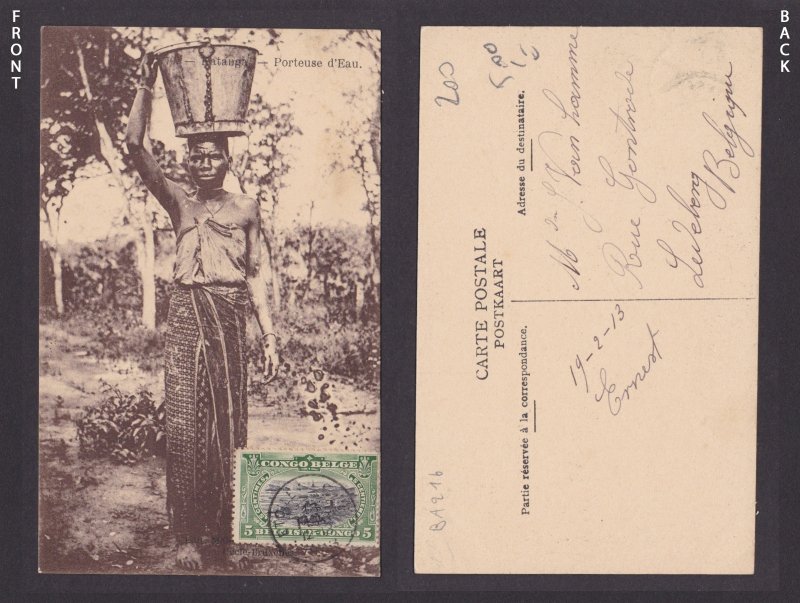 FRONT
BACK
Katanga. — Porteuse d'Eau.
CONGO BELGE
CENTIMES
CENTIEMEN
5 BELGISCH-CONGO 5
200
CARTE POSTALE
POSTKAART
Adresse du destinataire.
Partie réservée à la correspondance.
Rue Gontrode
Ledeberg
Belgique
19-2-13
Ernest
BA216